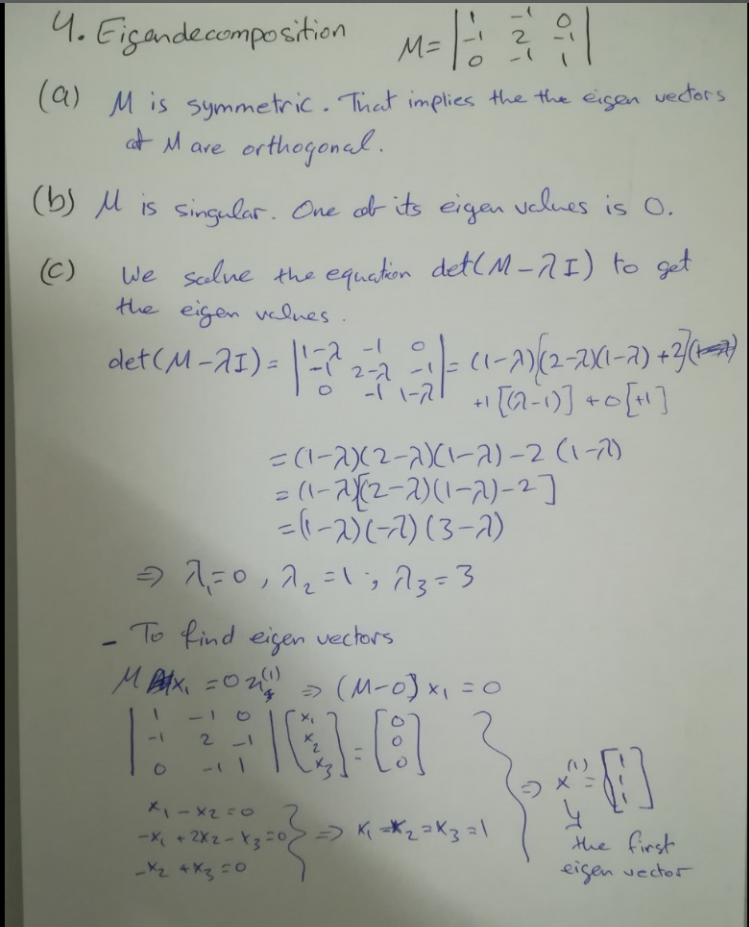 4. Eigendecomposition M= | 1 -1 0 |
| -1 2 -1 |
| 0 -1 1 |
(a) M is symmetric. That implies the the eigen vectors
of M are orthogonal.
(b) M is singular. One of its eigen values is 0.
(c) We solve the equation det(M-λI) to get
the eigen values.
det(M-λI) = | 1-λ -1 0 | = (1-λ)[(2-λ)(1-λ)+2]
| -1 2-λ -1 |
| 0 -1 1-λ | +1[(λ-1)] +0[+1]
=(1-λ)(2-λ)(1-λ)-2(1-λ)
=(1-λ)[(2-λ)(1-λ)-2]
=(1-λ)(-λ)(3-λ)
⇒ λ₁=0, λ₂=1; λ₃=3
- To find eigen vectors
M x₁ = 0 ⇒ (M-0] x₁ = 0
| 1 -1 0 | [x₁] = [0]
| -1 2 -1 | [x₂] [0]
| 0 -1 1 | [x₃] [0]
⇒ x⁽¹⁾ = [1 1 1]
x₁ - x₂ = 0
-x₁ + 2x₂ - x₃ = 0 } ⇒ x₁ = x₂ = x₃ = 1
-x₂ + x₃ = 0
the first
eigen vector